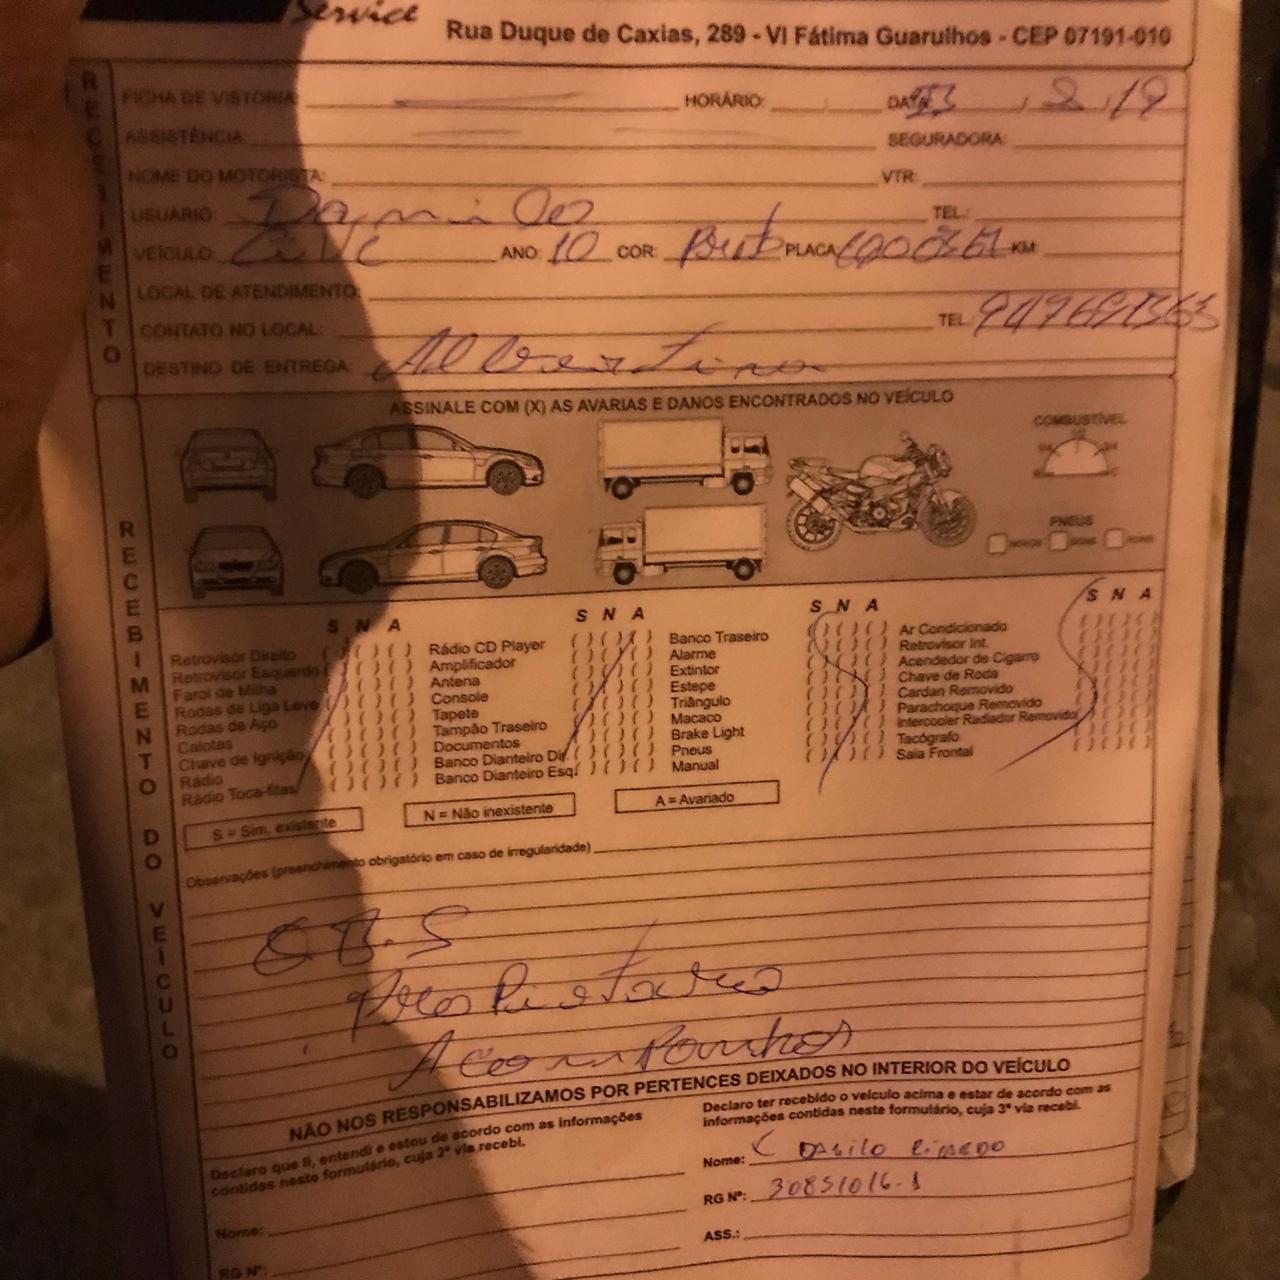 Service
Rua Duque de Caxias, 289 - Vl Fátima Guarulhos - CEP 07191-010
RECEBIMENTO
FICHA DE VISTORIA: HORÁRIO: DATA: / 2 / 19
ASSISTÊNCIA: SEGURADORA:
NOME DO MOTORISTA: VTR:
USUÁRIO: TEL.:
VEÍCULO: Civic ANO: 10 COR: PLACA KM:
LOCAL DE ATENDIMENTO:
CONTATO NO LOCAL: TEL
DESTINO DE ENTREGA: Albertina
RECEBIMENTO DO VEÍCULO
ASSINALE COM (X) AS AVARIAS E DANOS ENCONTRADOS NO VEÍCULO
COMBUSTÍVEL
1/4 1/2 3/4
R C
PNEUS
NOVOS BONS RUINS
S N A
Retrovisor Direito
Retrovisor Esquerdo
Farol de Milha
Rodas de Liga Leve
Rodas de Aço
Calotas
Chave de Ignição
Rádio
Rádio Toca-fitas
S N A
Rádio CD Player
Amplificador
Antena
Console
Tapete
Tampão Traseiro
Documentos
Banco Dianteiro Dir.
Banco Dianteiro Esq.
S N A
Banco Traseiro
Alarme
Extintor
Estepe
Triângulo
Macaco
Brake Light
Pneus
Manual
S N A
Ar Condicionado
Retrovisor Int.
Acendedor de Cigarro
Chave de Roda
Cardan Removido
Parachoque Removido
Intercooler Radiador Removido
Tacógrafo
Saia Frontal
S = Sim, existente
N = Não inexistente
A = Avariado
Observações (preenchimento obrigatório em caso de irregularidade)
OB.S
NÃO NOS RESPONSABILIZAMOS POR PERTENCES DEIXADOS NO INTERIOR DO VEÍCULO
Declaro que li, entendi e estou de acordo com as informações
contidas neste formulário, cuja 2ª via recebi.
Nome:
RG Nº:
Declaro ter recebido o veículo acima e estar de acordo com as
informações contidas neste formulário, cuja 3ª via recebi.
Nome: DANILO RICARDO
RG Nº: 30851016-1
ASS.: